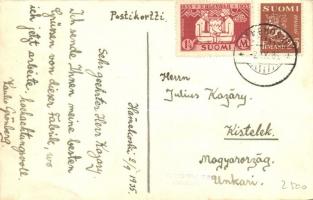 Postikortti.
Hämekoski 2/9 1935.
Sehr geehrter Herr Kozáry.
Ich sende Ihnen meine besten
Grüssen von dieser Fabrik, wo
ich jetzt arbeite, hochachtungsvoll
Herrn
Julius Kozáry,
Kistelek.
Magyarország.
Unkari.
SUOMI
1¼ M
SUOMI
FINLAND
2500